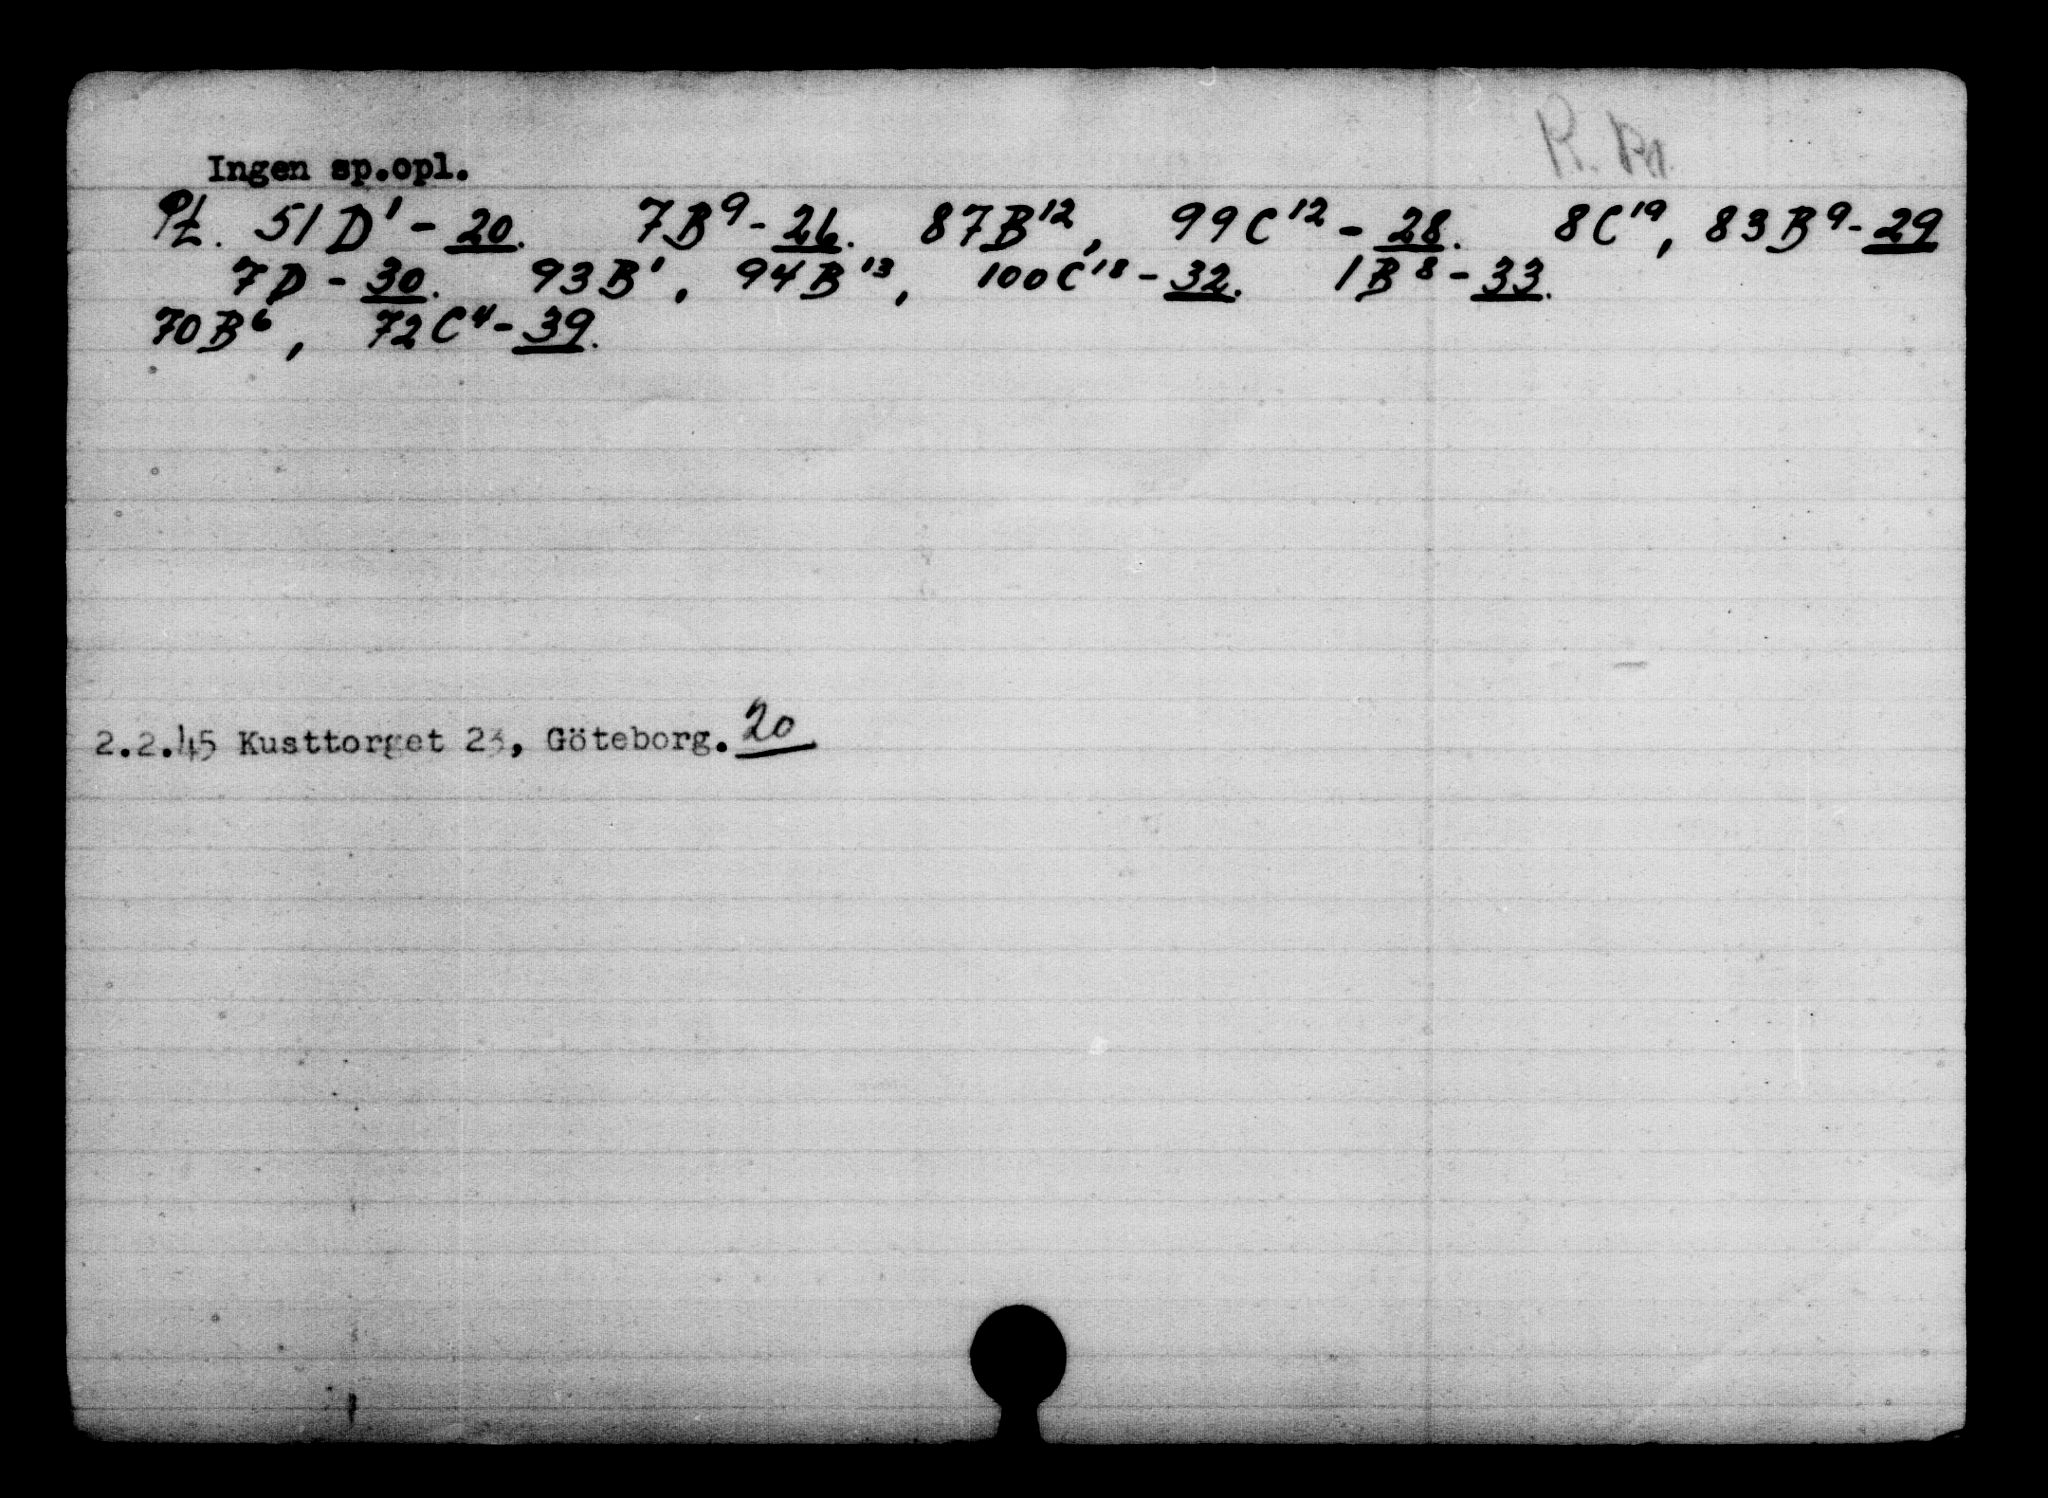 Ingen sp.opl.
Pt. 51 D¹ - 20. 7B⁹ - 26. 87B¹², 99C¹² - 28. 8C¹⁹, 83B⁹ - 29
7D - 30. 93B¹, 94B¹³, 100C¹⁸ - 32. 1B⁸ - 33.
70B⁶, 72C⁴ - 39.
2.2.45 Kusttorget 23, Göteborg. 20